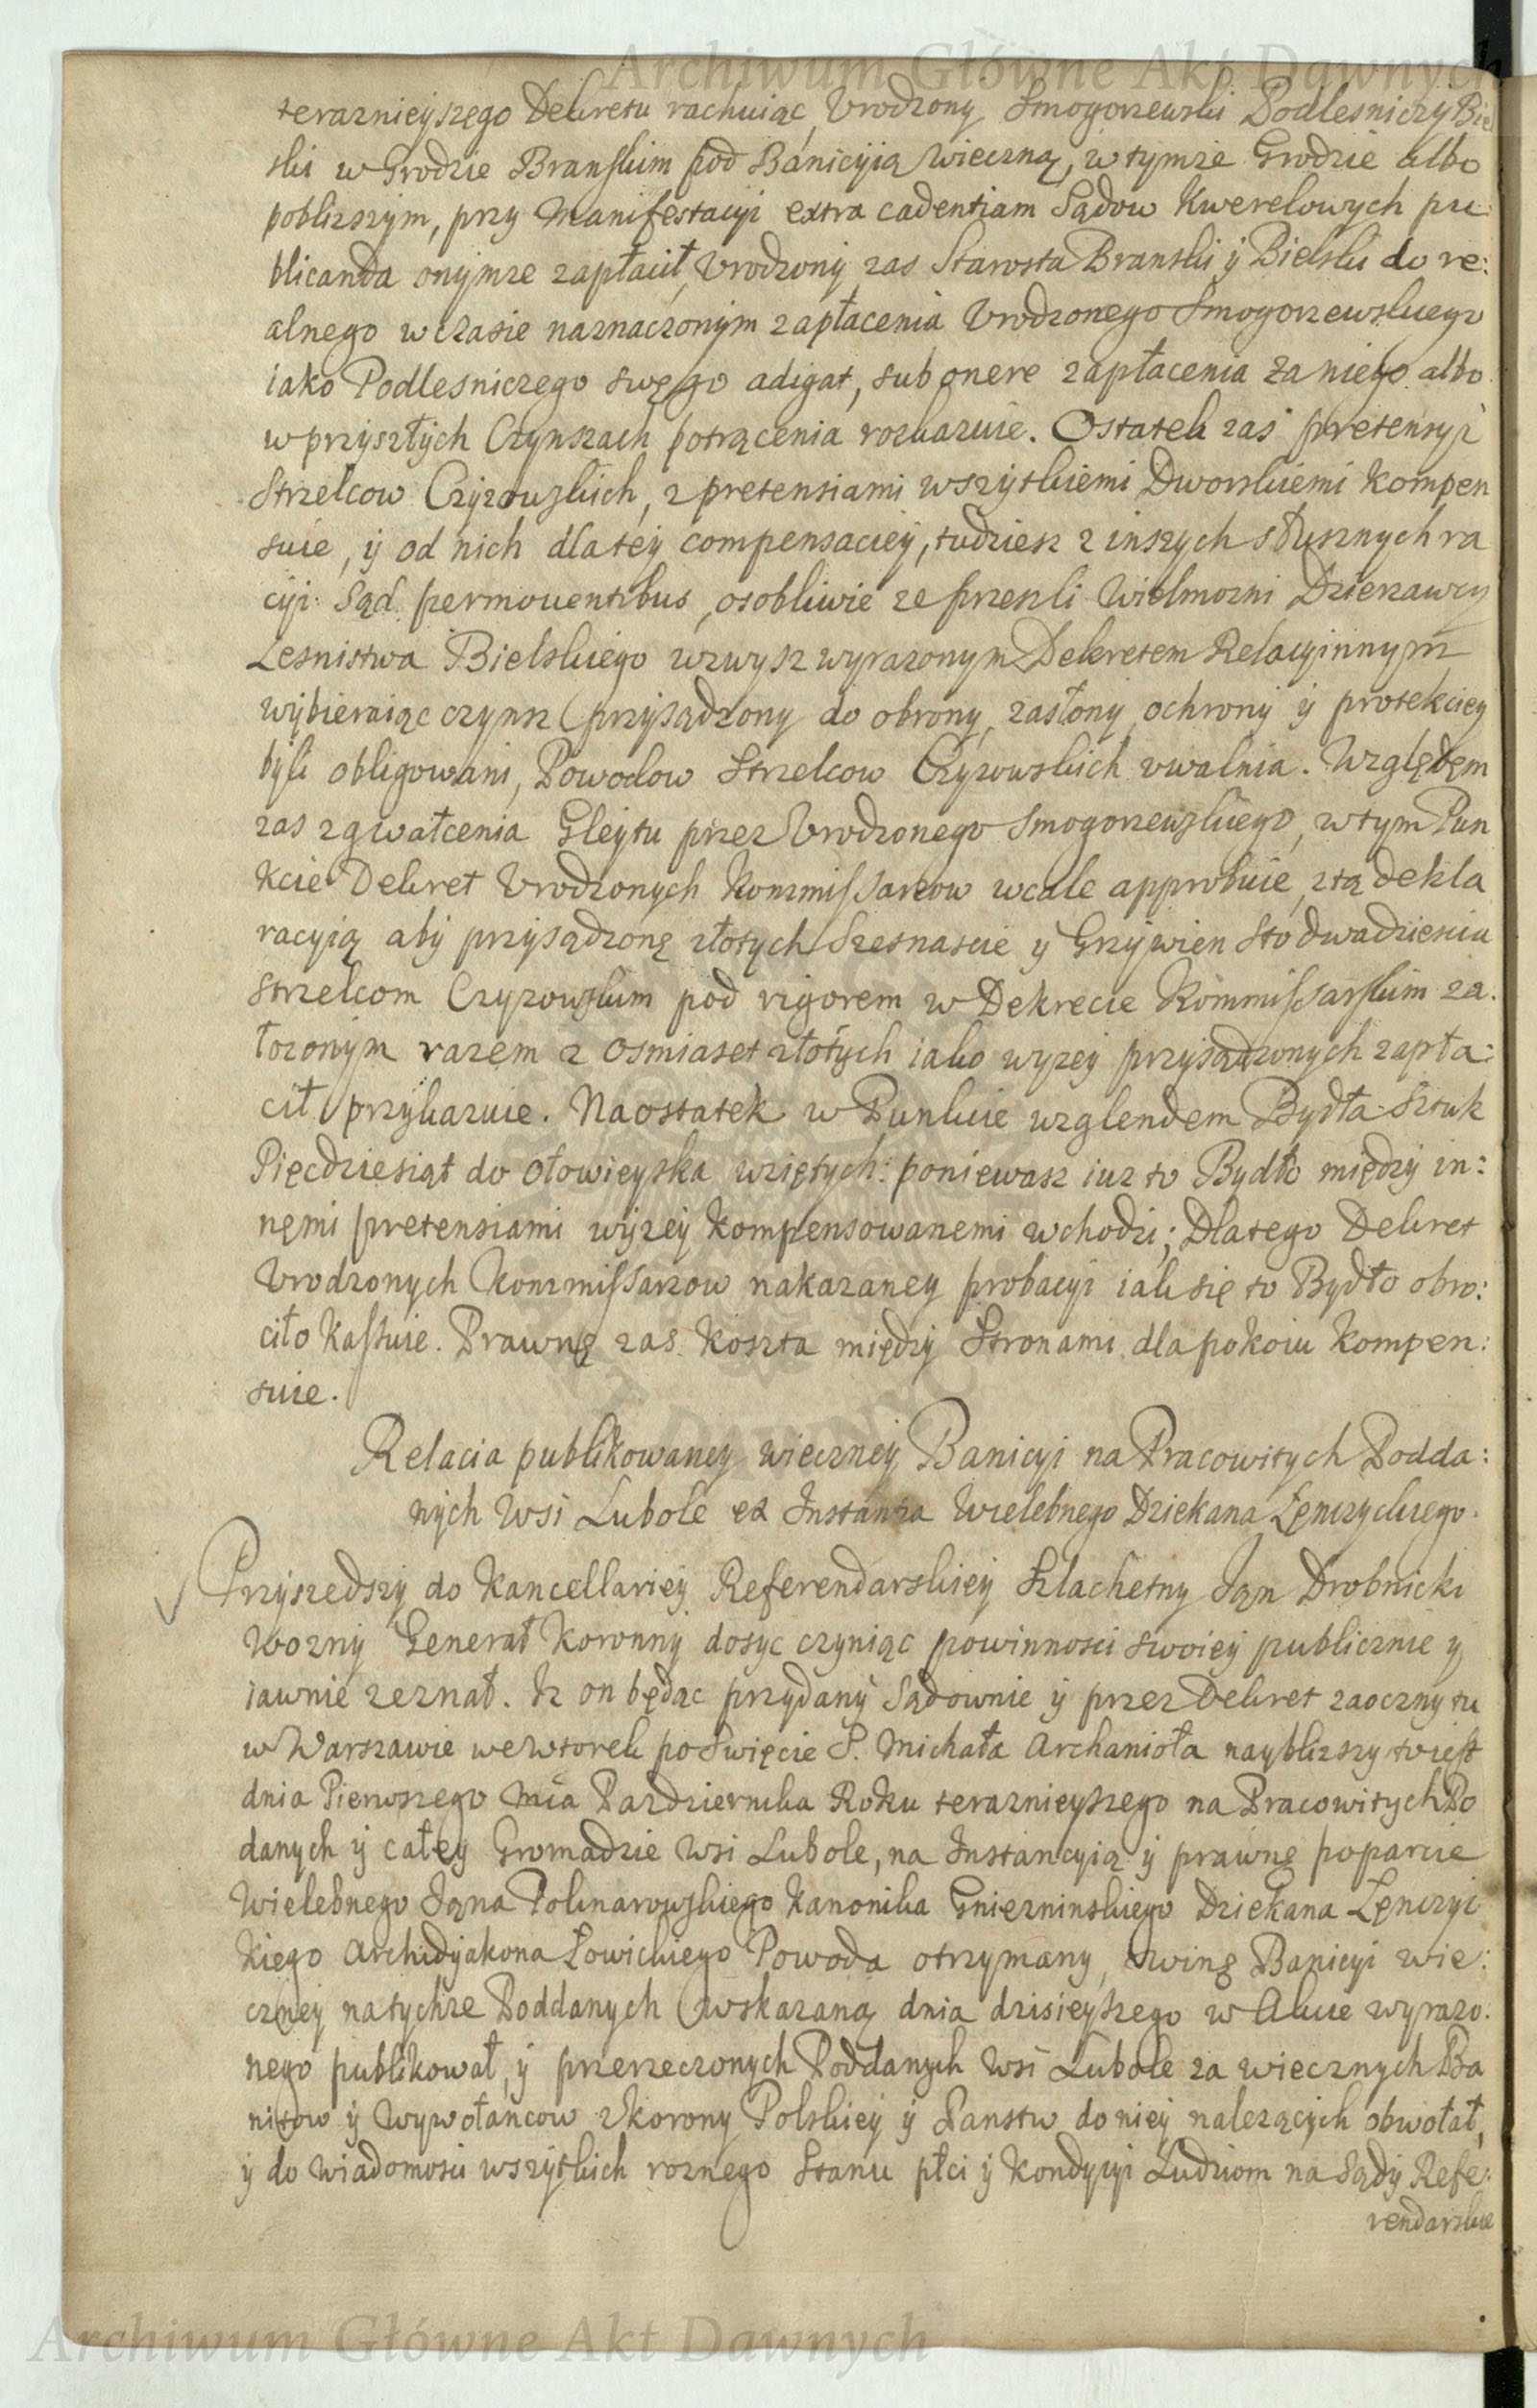 Archiwum Główne Akt Dawnych
teraznieyszego Dekretu rachuiąc, Urodzony Smogorzewski Podlesniczy Biel
ski w Grodzie Branskim pod Banicyią wieczną, w tymze Grodzie albo
poblizszym, przy Manifestacyi extra cadentiam Sądow Kwerelowych pu:
blicanda onymze zapłacił, Urodzony zas Starosta Branski y Bielski do re:
alnego w czasie naznaczonym zapłacenia Urodzonego Smogorzewskiego
iako Podlesniczego swego adigat, sub onere zapłacenia za niego albo
w przyszłych Czynszach potrącenia rozkazuie. Ostatek zas pretensyi
Strzelcow Czyzowskich, z pretensiami wszystkiemi Dworskiemi kompen
suie, y od nich dla tey compensaciey, tudziesz z inszych słusznych ra
cyi: Sąd permouentibus, osobliwie ze przeszli Wielmozni Dzierzawcy
Lesnistwa Bielskiego wzwysz wyrazonym Dekretem Relacyinnym
wybieraiąc czynsz przysądzony do obrony, zasłony ochrony y protekciey
byli obligowani, Powodow Strzelcow Czyzowskich uwalnia. Względem
zas zgwałcenia Gleytu przez Urodzonego Smogorzewskiego, w tym Pun
kcie Dekret Urodzonych Kommissarzow wcale approbuie, z tą dekla
racyią aby przysądzoną złotych Szesnascie y Grzywien Sto dwadziescia
Strzelcom Czyzowskim pod rigorem w Dekrecie Kommissarskim za:
łozonym razem z osmiaset złotych iako wyzey przysądzonych zapła:
cił przykazuie. Naostatek w Punkcie wzglendem Bydła Sztuk
Pięcdziesiąt do Ołowieyska wziętych: poniewasz iuz to Bydło między in:
nęmi pretensiami wyzey kompensowanemi wchodzi; Dlatego Dekret
Urodzonych Kommissarzow nakazaney probacyi iak się to Bydło obro:
ciło kassuie. Prawnę zas koszta między Stronami dla pokoiu kompen:
suie.
Relacia publikowaney wieczney Banicyi na Pracowitych Podda:
nych Wsi Lubole ex Instantia Wielebnego Dziekana Łęnczyckiego.
Przyszedszy do Kancellariey Referendarskiey Szlachetny Jąn Drobnicki
Wozny Generał Koronny dosyc czyniąc powinnosci swoiey publicznie y
iawnie zeznał. Iz on będąc przydany Sądownie y przez Dekret zaoczny tu
w Warszawie we Wtorek po Swięcie S. Michała Archanioła nayblizszy to iest
dnia Pierwszego Mca Pazdziernika Roku teraznieyszego na Pracowitych Po
danych y całey Gromadzie Wsi Lubole, na Instancyią y prawnę poparcie
Wielebnego Jąna Kanonika Gniezninskiego Dziekana Łęnczyc
kiego Archidyakona Łowickiego Powoda otrzymany, winę Banicyi wie:
czney na tychze Poddanych wskazaną dnia dzisieyszego w Akcie wyrazo:
nego publikował, y przerzeczonych Poddanych Wsi Lubole za wiecznych Ba
nitow y Wywołancow z Korony Polskiey y Panstw do niey nalezących obwołał,
y do wiadomosci wszystkich roznego Stanu płci y kondycyi Ludziom na Sądy Refe:
rendarskie
Archiwum Główne Akt Dawnych